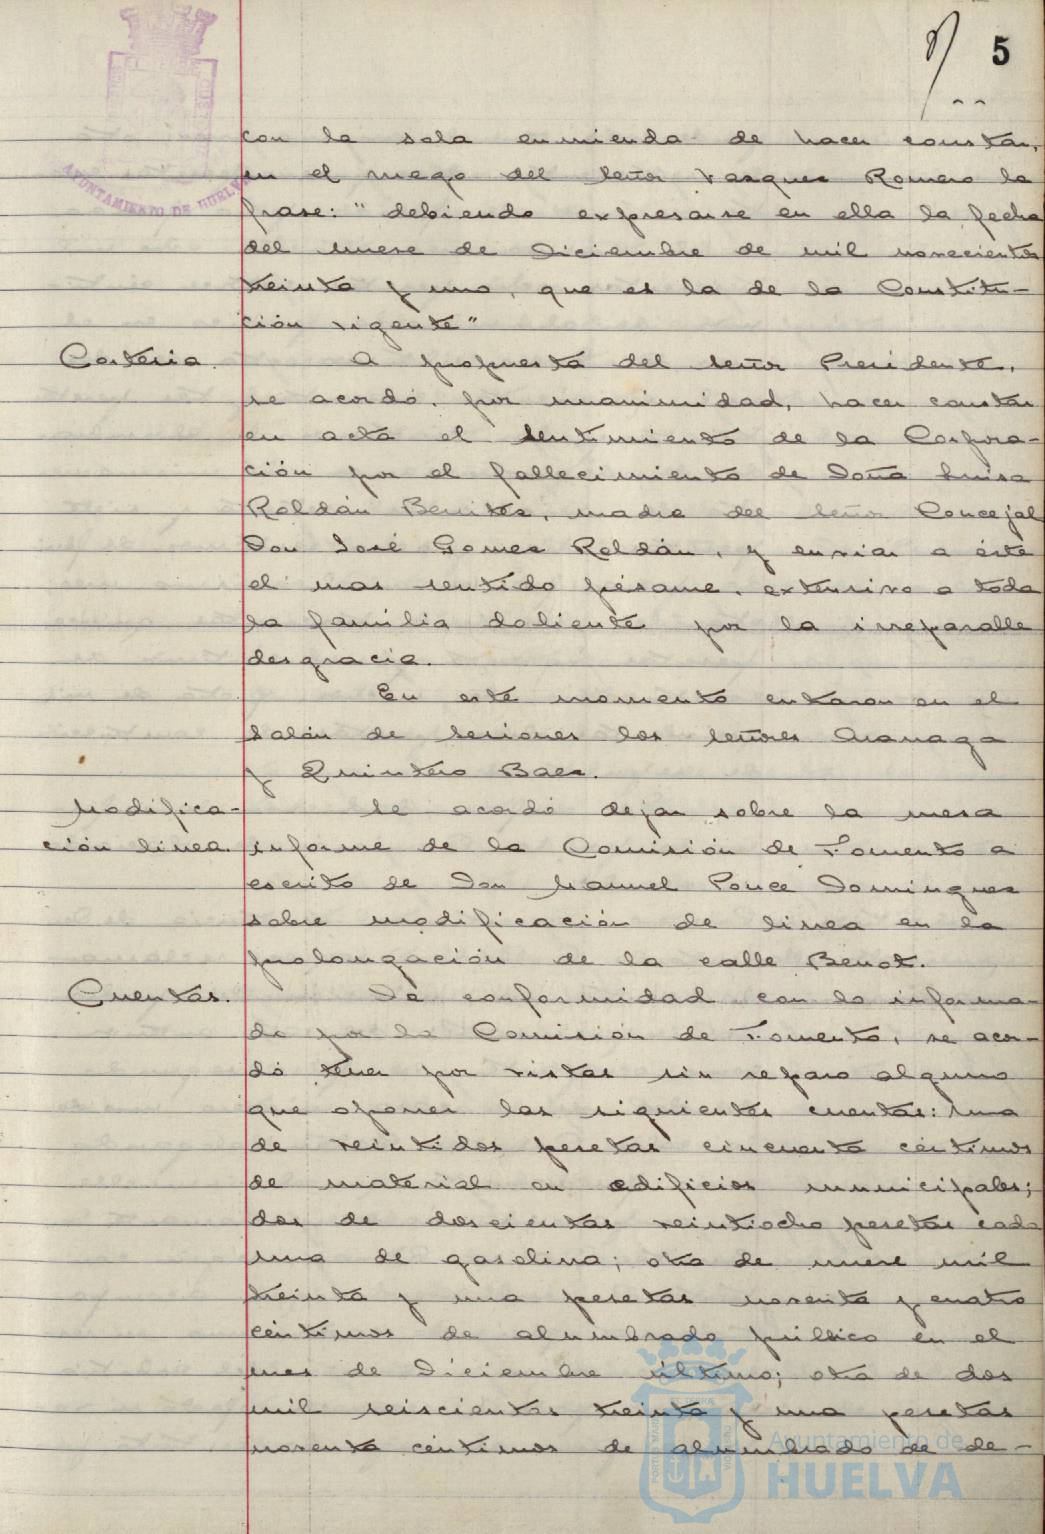 5
AYUNTAMIENTO DE HUELVA
con la sola enmienda de hacer constar,
en el ruego del señor Vazquez Romero la
frase: "debiendo expresarse en ella la fecha
del nueve de Diciembre de mil novecientos
treinta y uno, que es la de la Constitu-
ción vigente"
Cortesia.
A propuesta del señor Presidente,
se acordó, por unanimidad, hacer constar
en acta el sentimiento de la Corpora-
ción por el fallecimiento de Doña Luisa
Roldán Benitez, madre del señor Concejal
Don José Gomez Roldán, y enviar a éste
el mas sentido pésame, extensivo a toda
la familia doliente por la irreparable
desgracia.
En este momento entraron en el
salón de sesiones los señores
y Quintero Baez.
Modifica-
ción linea.
Se acordó dejar sobre la mesa
informe de la Comisión de Fomento a
escrito de Don Manuel Ponce Dominguez
sobre modificación de linea en la
prolongación de la calle Benot.
Cuentas.
De conformidad con lo informa-
do por la Comisión de Fomento, se acor-
dó tener por vistas sin reparo alguno
que oponer las siguientes cuentas: una
de veintidos pesetas cincuenta céntimos
de material en edificios municipales;
dos de doscientas veintiocho pesetas cada
una de gasolina; otra de nueve mil
treinta y una pesetas noventa y cuatro
céntimos de alumbrado público en el
mes de Diciembre último; otra de dos
mil seiscientas treinta y una pesetas
noventa céntimos de alumbrado de de-
Ayuntamiento de
HUELVA